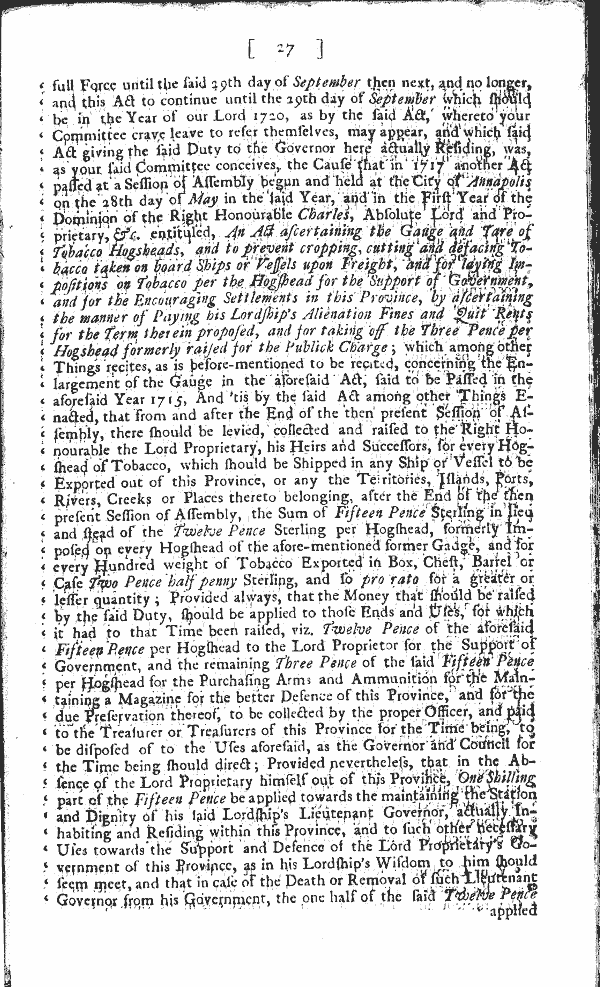 [ 27 ]
‘ full Force until the said 29th day of September then next, and no longer,
‘ and this Act to continue until the 29th day of September which should
‘ be in the Year of our Lord 1720, as by the said Act, whereto your
‘ Committee crave leave to refer themselves, may appear, and which said
‘ Act giving the said Duty to the Governor here actually Residing, was,
‘ as your said Committee conceives, the Cause that in 1717 another Act
‘ passed at a Session of Assembly begun and held at the City of Annapolis
‘ on the 28th day of May in the said Year, and in the First Year of the
‘ Dominion of the Right Honourable Charles, Absolute Lord and Pro-
‘ prietary, &c. entituled, An Act ascertaining the Gauge and Tare of
‘ Tobacco Hogsheads, and to prevent cropping, cutting and defacing To-
‘ bacco taken on board Ships or Vessels upon Freight, and for laying Im-
‘ positions on Tobacco per the Hogshead for the Support of Government,
‘ and for the Encouraging Settlements in this Province, by ascertaining
‘ the manner of Paying his Lordship's Alienation Fines and Quit Rents
‘ for the Term therein proposed, and for taking off the Three Pence per
‘ Hogshead formerly raised for the Publick Charge; which among other
‘ Things recites, as is before-mentioned to be recited, concerning the En-
‘ largement of the Gauge in the aforesaid Act, said to be Passed in the
‘ aforesaid Year 1715, And 'tis by the said Act among other Things E-
‘ nacted, that from and after the End of the then present Session of As-
‘ sembly, there should be levied, collected and raised to the Right Ho-
‘ nourable the Lord Proprietary, his Heirs and Successors, for every Hog-
‘ shead of Tobacco, which should be Shipped in any Ship or Vessel to be
‘ Exported out of this Province, or any the Teritories, Islands, Ports,
‘ Rivers, Creeks or Places thereto belonging, after the End of the then
‘ present Session of Assembly, the Sum of Fifteen Pence Sterling in lieu
‘ and stead of the Twelve Pence Sterling per Hogshead, formerly Im-
‘ posed on every Hogshead of the afore-mentioned former Gadge, and for
‘ every Hundred weight of Tobacco Exported in Box, Chest, Barrel or
‘ Case Two Pence half penny Sterling, and so pro rato for a greater or
‘ lesser quantity; Provided always, that the Money that should be raised
‘ by the said Duty, should be applied to those Ends and Uses, for which
‘ it had to that Time been raised, viz. Twelve Pence of the aforesaid
‘ Fifteen Pence per Hogshead to the Lord Proprietor for the Support of
‘ Government, and the remaining Three Pence of the said Fifteen Pence
‘ per Hogshead for the Purchasing Arms and Ammunition for the Main-
‘ taining a Magazine for the better Defence of this Province, and for the
‘ due Preservation thereof, to be collected by the proper Officer, and paid
‘ to the Treasurer or Treasurers of this Province for the Time being, to
‘ be disposed of to the Uses aforesaid, as the Governor and Council for
‘ the Time being should direct; Provided nevertheless, that in the Ab-
‘ sence of the Lord Proprietary himself out of this Province, One Shilling
‘ part of the Fifteen Pence be applied towards the maintaining the Station
‘ and Dignity of his said Lordship's Lieutenant Governor, actually In-
‘ habiting and Residing within this Province, and to such other necessary
‘ Uses towards the Support and Defence of the Lord Proprietary's Go-
‘ vernment of this Province, as in his Lordship's Wisdom to him should
‘ seem meet, and that in case of the Death or Removal of such Lieutenant
‘ Governor from his Government, the one half of the said Twelve Pence
‘ applied